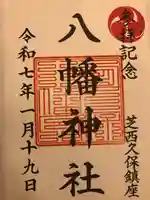 参拝記念
芝西久保鎮座
八幡神社
令和七年一月十九日